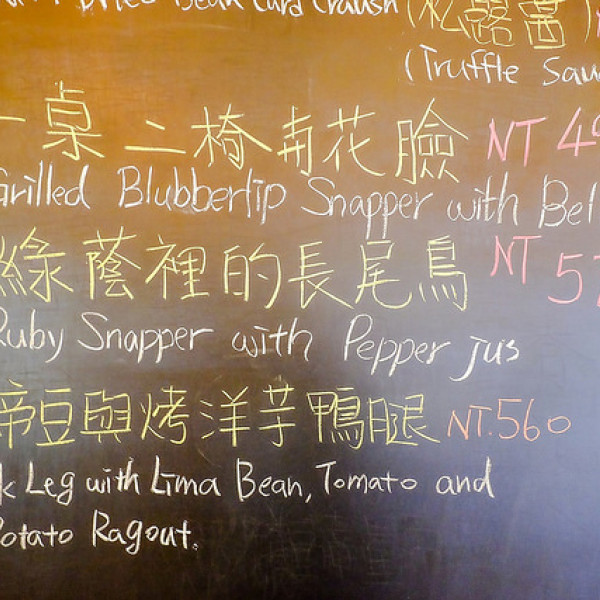 Dried Bean Curd Craush (松露醬)
(Truffle Sau
一桌二椅有花臉 NT 49
Grilled Blubberlip Snapper with Bel
綠蔭裡的長尾鳥 NT 57
Ruby Snapper with Pepper jus
帝豆與烤洋芋鴨腿 NT.560
k Leg with Lima Bean, Tomato and
Potato Ragout.